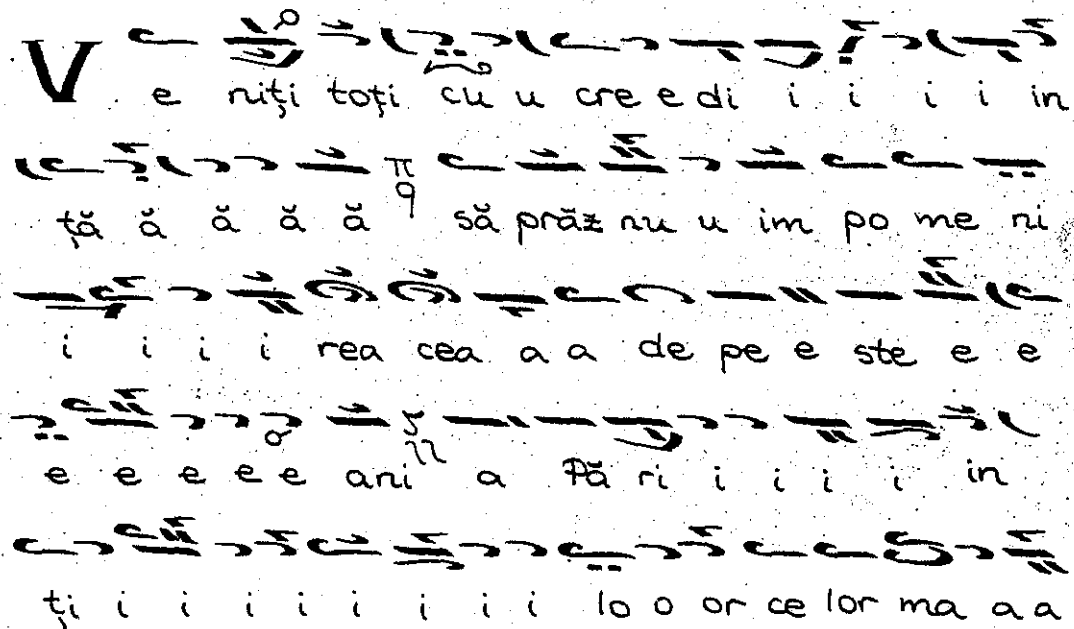 Ve niți toți cu u cre e di i i i i in
ță ă ă ă ă să prăz nu u im po me ni
i i i i rea cea a a de pe e ste e e
e e e e e ani a Pă ri i i i i in
ți i i i i i i i i lo o or ce lor ma a a